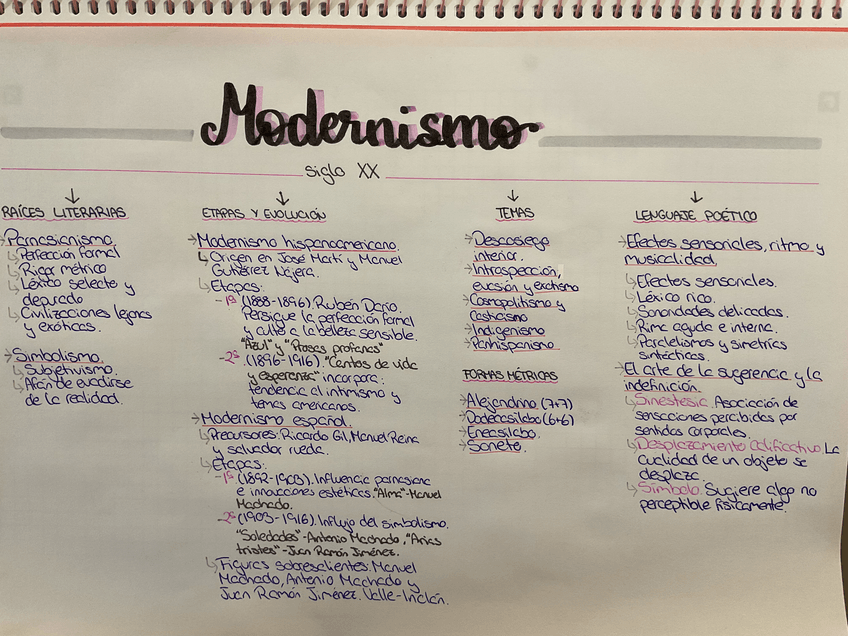 Modernismo
siglo XX
RAÍCES LITERARIAS
Parnasianismo.
Perfección formal
Rigor métrico
Léxico selecto y
depurado
Civilizaciones lejanas
y exóticas.
Simbolismo.
Subjetivismo.
Afán de evadirse
de la realidad.
ETAPAS Y EVOLUCIÓN
Modernismo hispanoamericano.
Origen en José Martí y Manuel
Gutiérrez Nájera.
Etapas:
-1ª (1888-1896). Rubén Darío.
Persigue la perfección formal
y culto a la belleza sensible.
"Azul" y "Prosas profanas"
-2ª (1896-1916). "Cantos de vida
y esperanza" incorpora:
tendencia al intimismo y
temas americanos.
Modernismo español.
Precursores: Ricardo Gil, Manuel Reina
y salvador rueda.
Etapas:
-1ª (1892-1903). Influencia parnasiana
e innovaciones estéticas. "Alma"-Manuel
Machado.
-2ª (1903-1916). Influjo del simbolismo.
"Soledades"-Antonio Machado, "Arias
tristes"-Juan Ramón Jiménez.
Figuras sobresalientes: Manuel
Machado, Antonio Machado y
Juan Ramón Jiménez. Valle-Inclán.
TEMAS
Desasosiego
interior.
Introspección,
evasión y exotismo
Cosmopolitismo y
casticismo
Indigenismo
Panhispanismo.
FORMAS MÉTRICAS
Alejandrino (7+7)
Dodecasílabo (6+6)
Eneasílabo.
Soneto.
LENGUAJE POÉTICO
Efectos sensoriales, ritmo y
musicalidad.
Efectos sensoriales.
Léxico rico.
Sonoridades delicadas.
Rima aguda e interna.
Paralelismos y simetrías
sintácticas.
El arte de la sugerencia y la
indefinición.
Sinestesia. Asociación de
sensaciones percibidas por
sentidos corporales.
Desplazamiento Calificativo. La
cualidad de un objeto se
desplaza.
Símbolo. Sugiere algo no
perceptible físicamente.